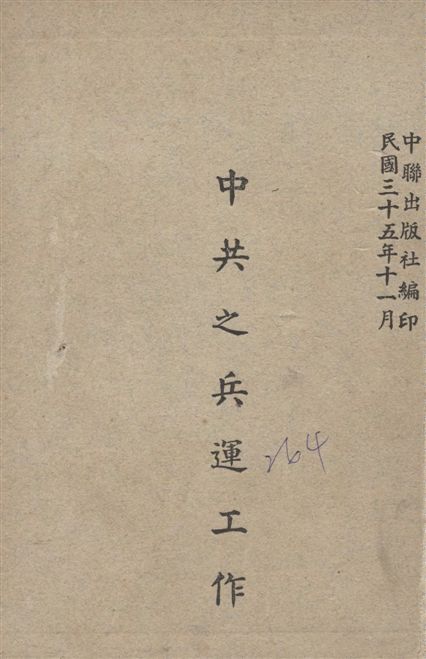 中聯出版社編印
民國三十五年十一月
中共之兵運工作
264